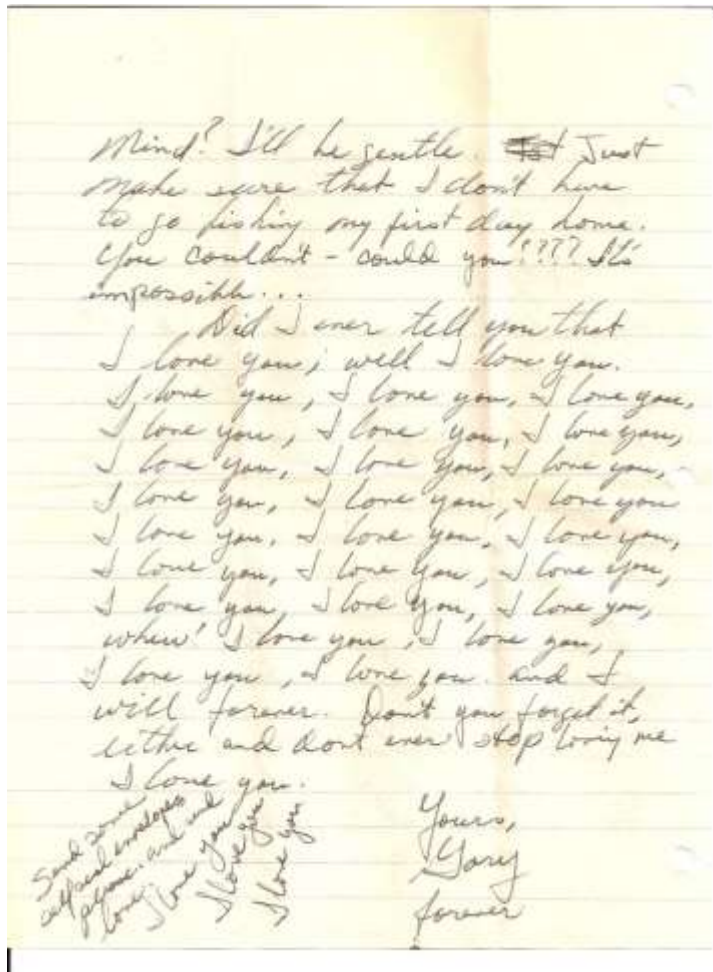 Mind? I'll be gentle. Just
make sure that I don't have
to go fishing my first day home.
You couldn't - could you!??? It's
impossible...
Did I ever tell you that
I love you; well I love you.
I love you, I love you, I love you,
I love you, I love you, I love you,
I love you, I love you, I love you,
I love you, I love you, I love you
I love you, I love you, I love you,
I love you, I love you, I love you,
I love you, I love you, I love you,
whew! I love you, I love you,
I love you, I love you. and I
will forever. Don't you forget it,
either and dont ever stop loving me
I love you.
Send some
selfseal envelopes
please. and send
love.
I love you
I love you
I love you
Yours,
Gary
forever